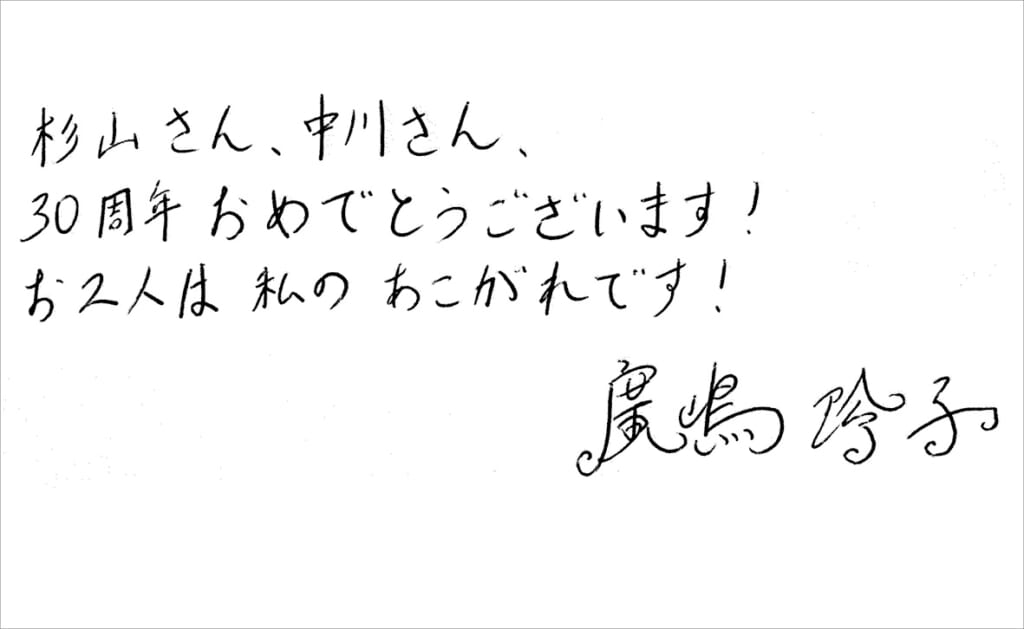 杉山さん、中川さん、
30周年おめでとうございます!
お2人は私のあこがれです!
廣嶋玲子